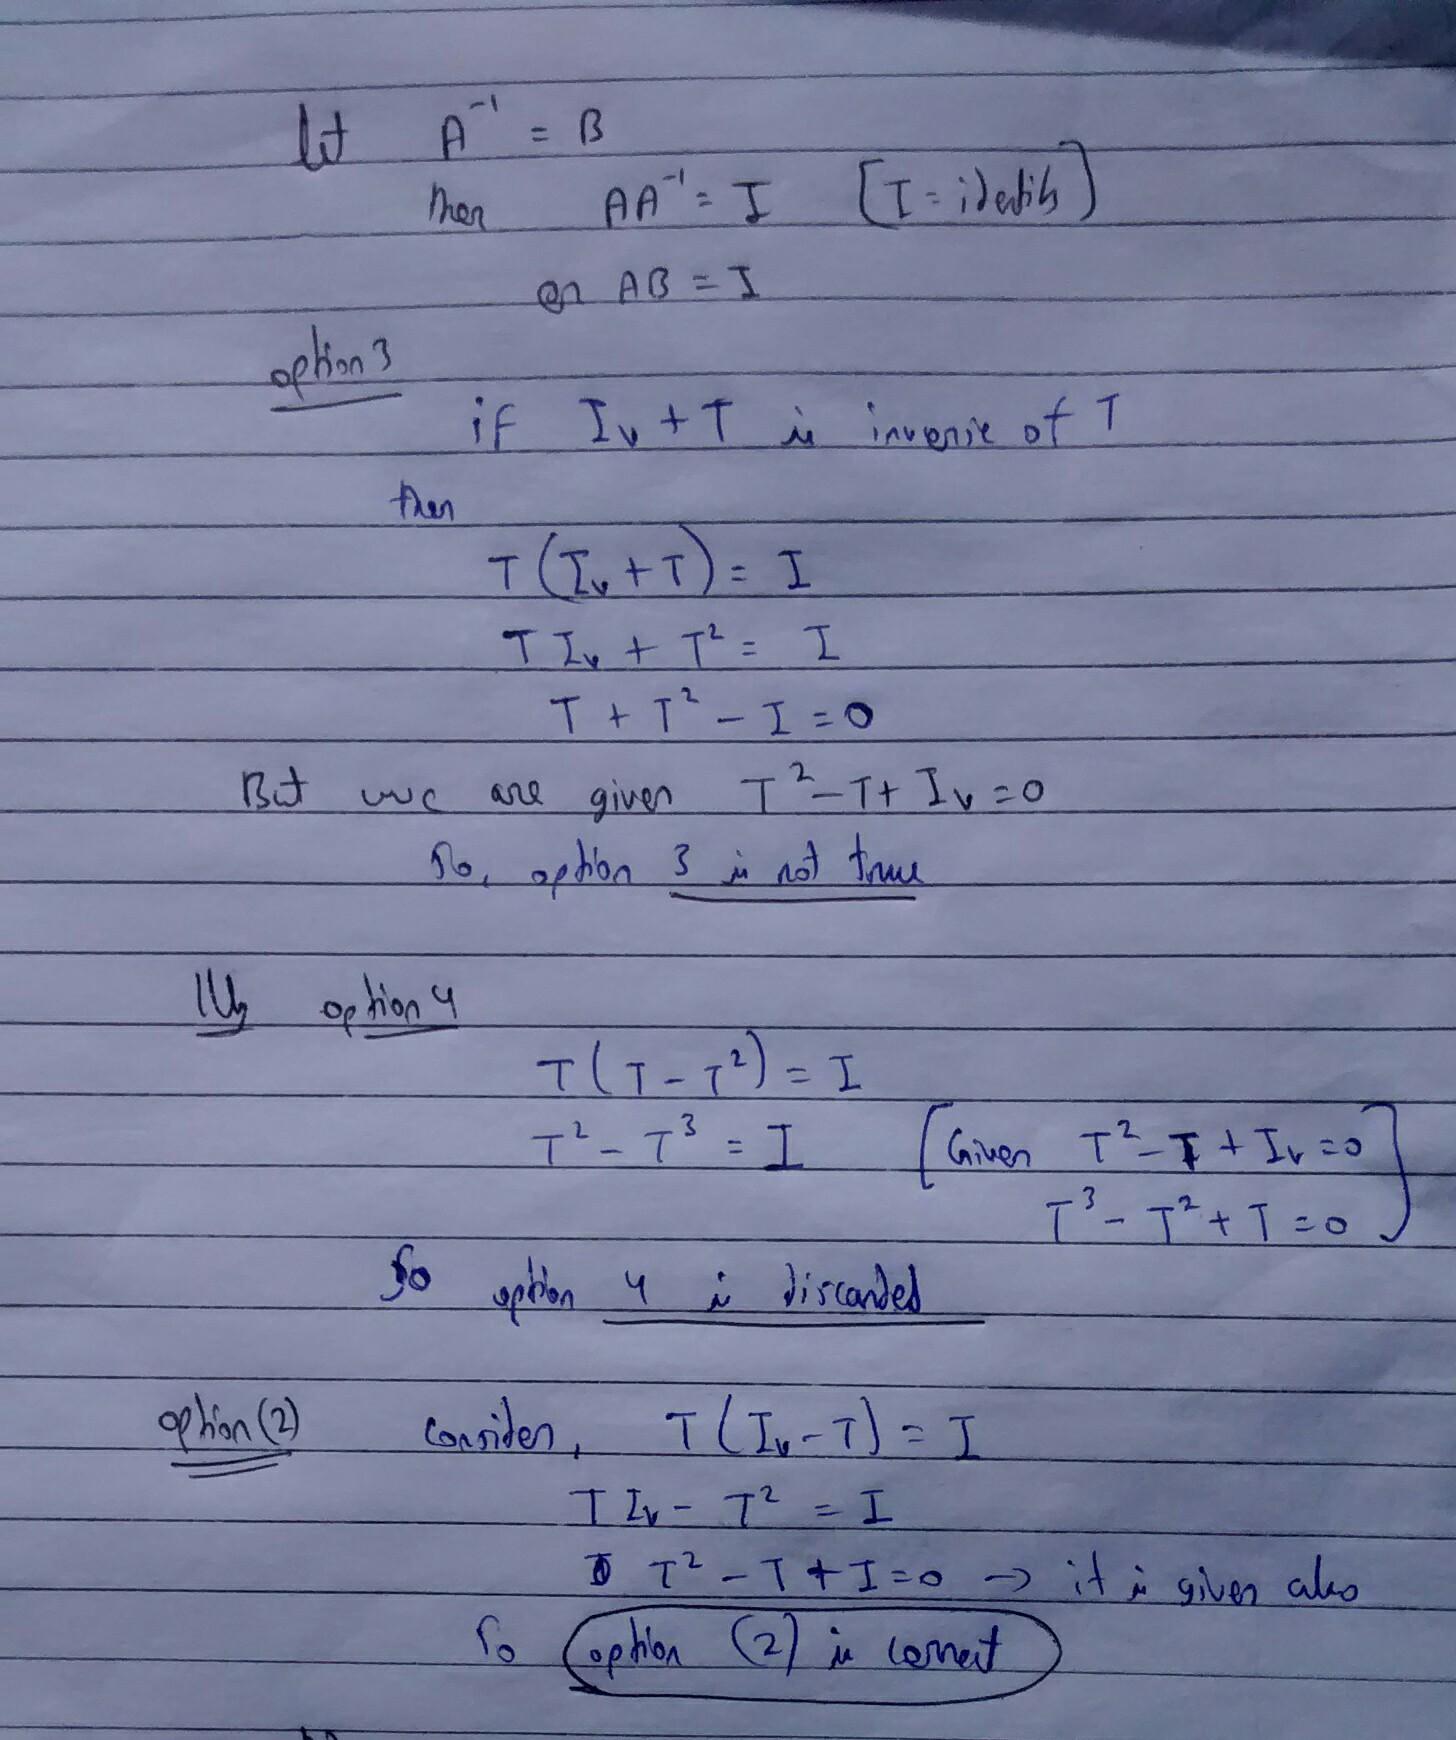 let A⁻¹ = B
then AA⁻¹ = I [I = identity]
or AB = I
option 3
if Iᵥ + T is inverse of T
then
T(Iᵥ + T) = I
T Iᵥ + T² = I
T + T² - I = 0
But we are given T² - T + Iᵥ = 0
So, option 3 is not true
lllly option 4
T(T - T²) = I
T² - T³ = I [Given T² - T + Iᵥ = 0
T³ - T² + T = 0]
So option 4 is discarded
option (2) consider, T(Iᵥ - T) = I
T Iᵥ - T² = I
T² - T + I = 0 → it is given also
So option (2) is correct